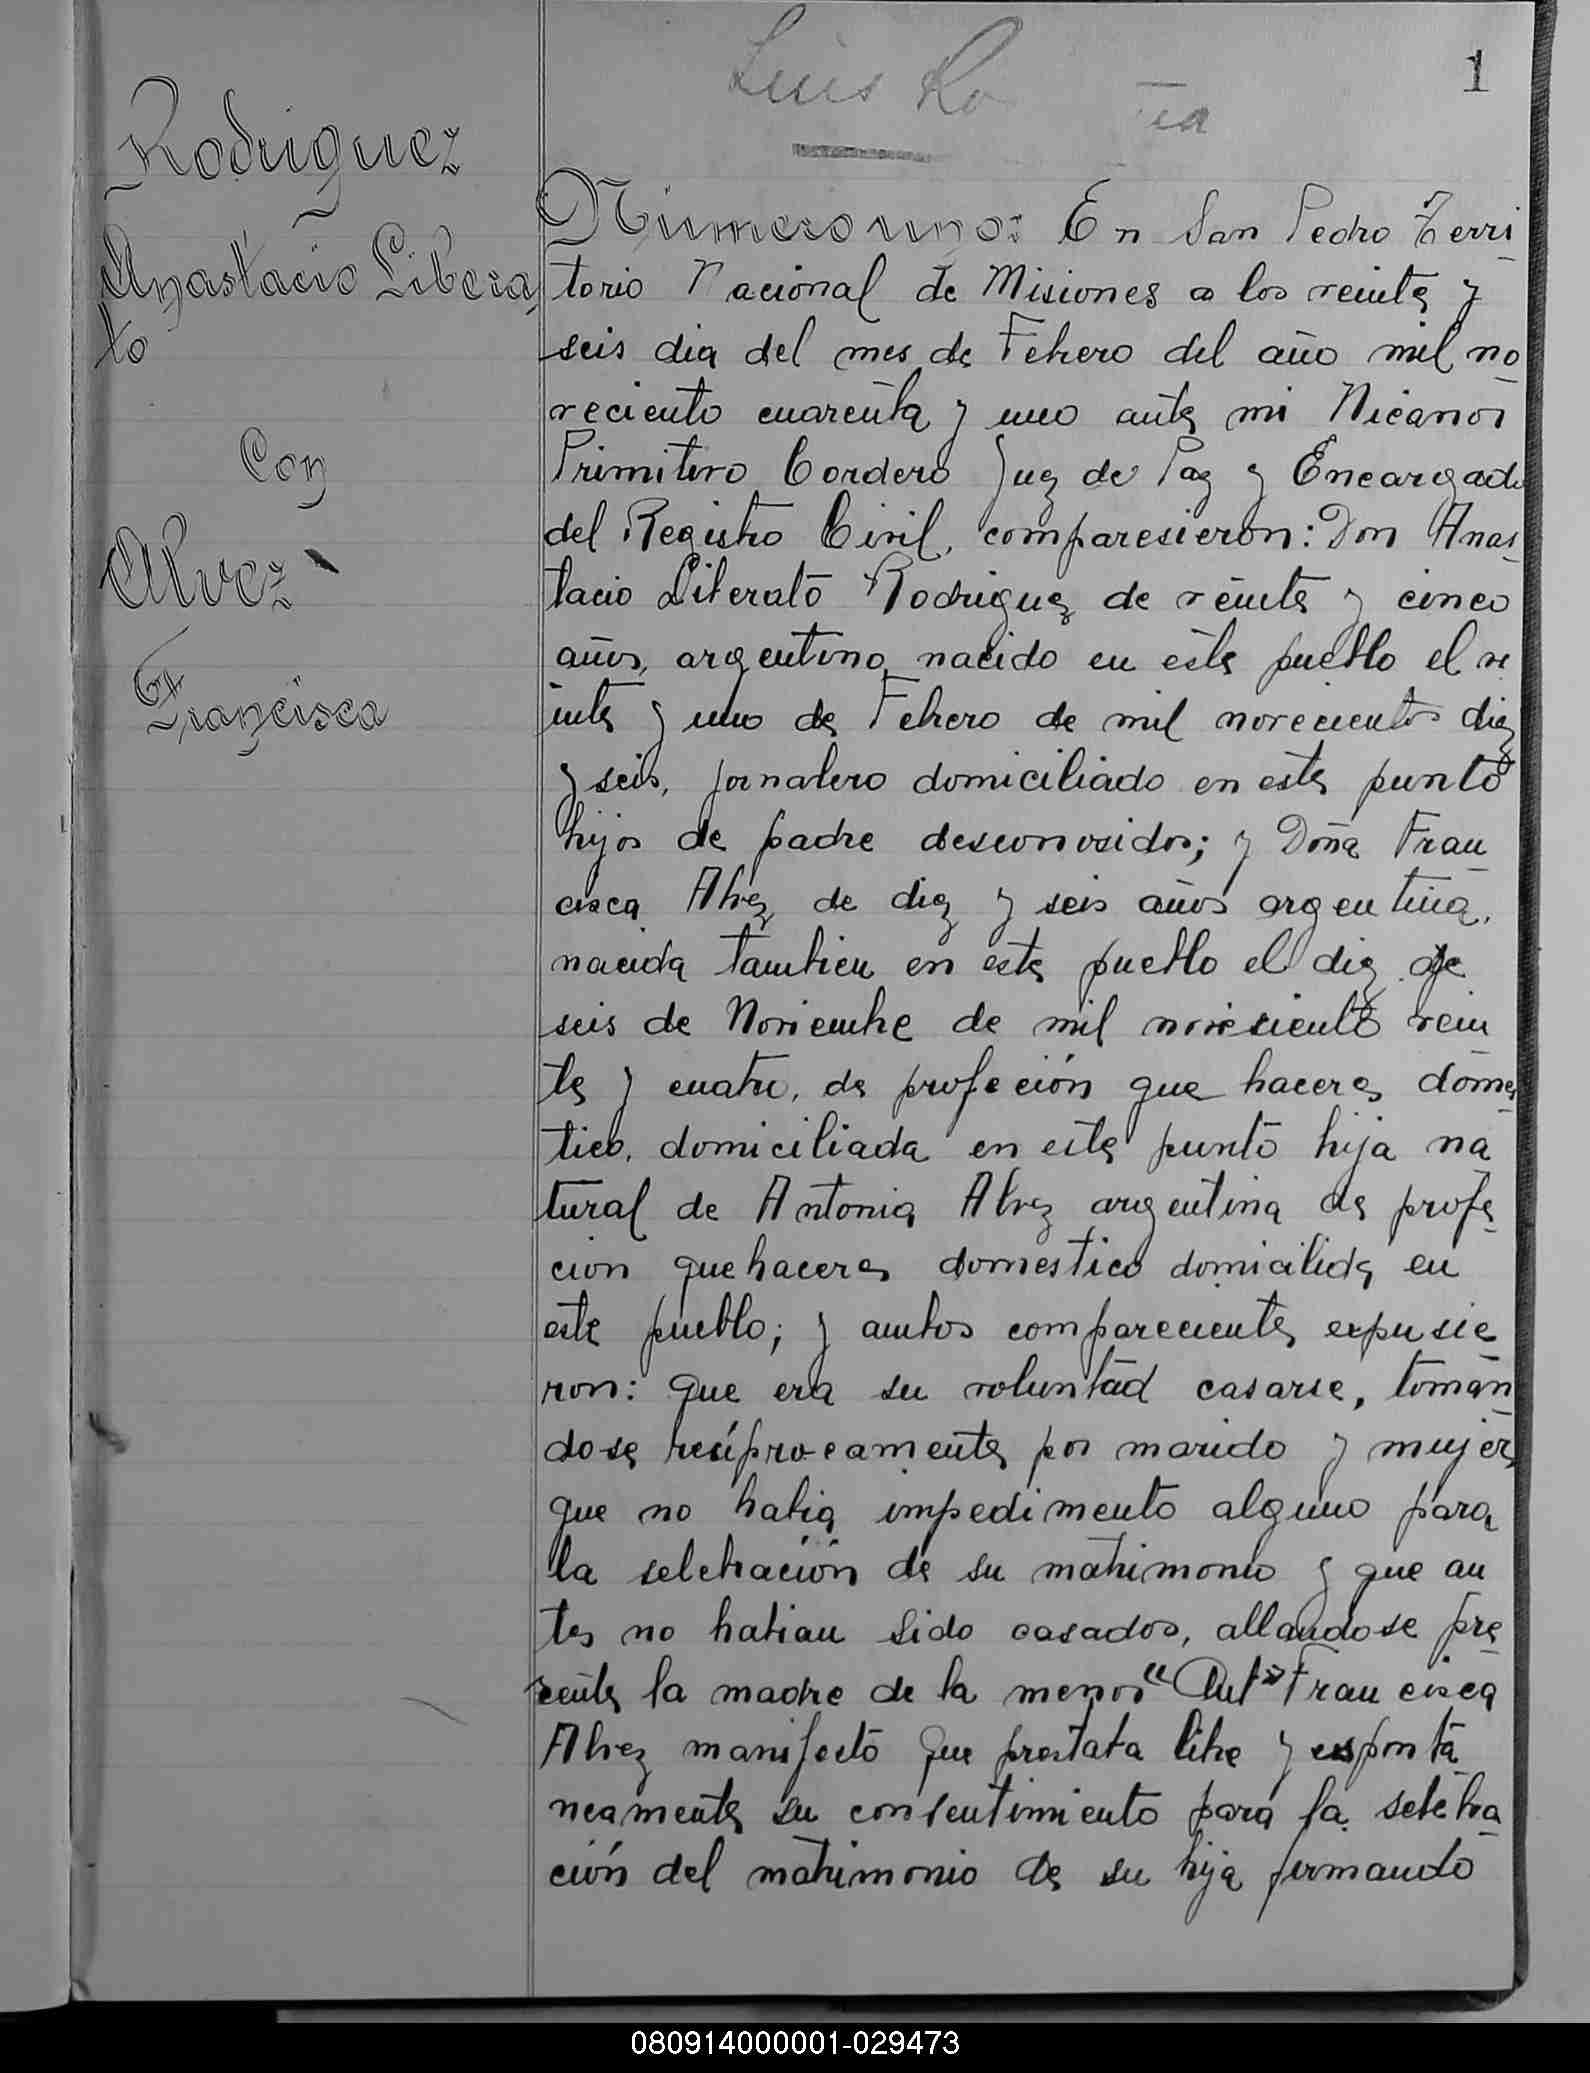 Luis Ro
1
Rodriguez
Anastacio Libera
to
Con
Alvez
Francisca
Número uno: En San Pedro Terri
torio Nacional de Misiones a los veinte y
seis dia del mes de Febrero del año mil no
veciento cuarenta y uno ante mi Nicanor
Primitivo Cordero Juez de Paz y Encargado
del Registro Civil, comparesieron: Don Anas
tacio Liberato Rodriguez de veinte y cinco
años, argentino nacido en este pueblo el ve
inte y uno de Febrero de mil novecientos diez
y seis, jornalero domiciliado en este punto
hijos de padre desconosidos; y Doña Fran
cisca Alvez de diez y seis años argentina,
nacida tambien en este pueblo el diez de
seis de Noviembre de mil novesiento vein
te y cuatro, de profeción que haceres domes
tico, domiciliada en este punto hija na
tural de Antonia Alvez argentina de profe
cion quehaceres domestico domicilida en
este pueblo; y ambos comparecientes expusie
ron: que era su voluntad casarse, toman
dose recíprocamente por marido y mujer,
que no habia impedimento alguno para
la selebración de su matrimonio y que an
tes no habian sido casados, allandose pre
sente la madre de la menor "Ant" Francisca
Alvez manifestó que prestaba libre y espontá
neamente su consentimiento para la selebra
ción del matrimonio de su hija firmando
080914000001-029473